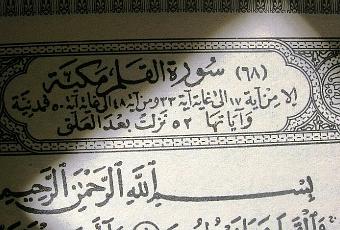 (٦٨) سُورَةُ القَلَمِ مَكِيَّة
إلا من آية ١٧ إلى غاية آية ٣٣ ومن آية ٤٨ إلى غاية آية ٥٠ فمدنية
وآياتها ٥٢ نزلت بعد العلق
بِسْمِ ٱللَّهِ ٱلرَّحْمَٰنِ ٱلرَّحِيمِ